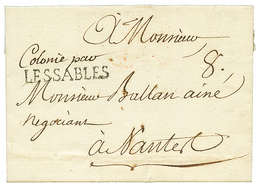 à Monsieur
Colonie par 8.
LESSABLES
Monsieur Ballan ainé
Negociant
à Nantes